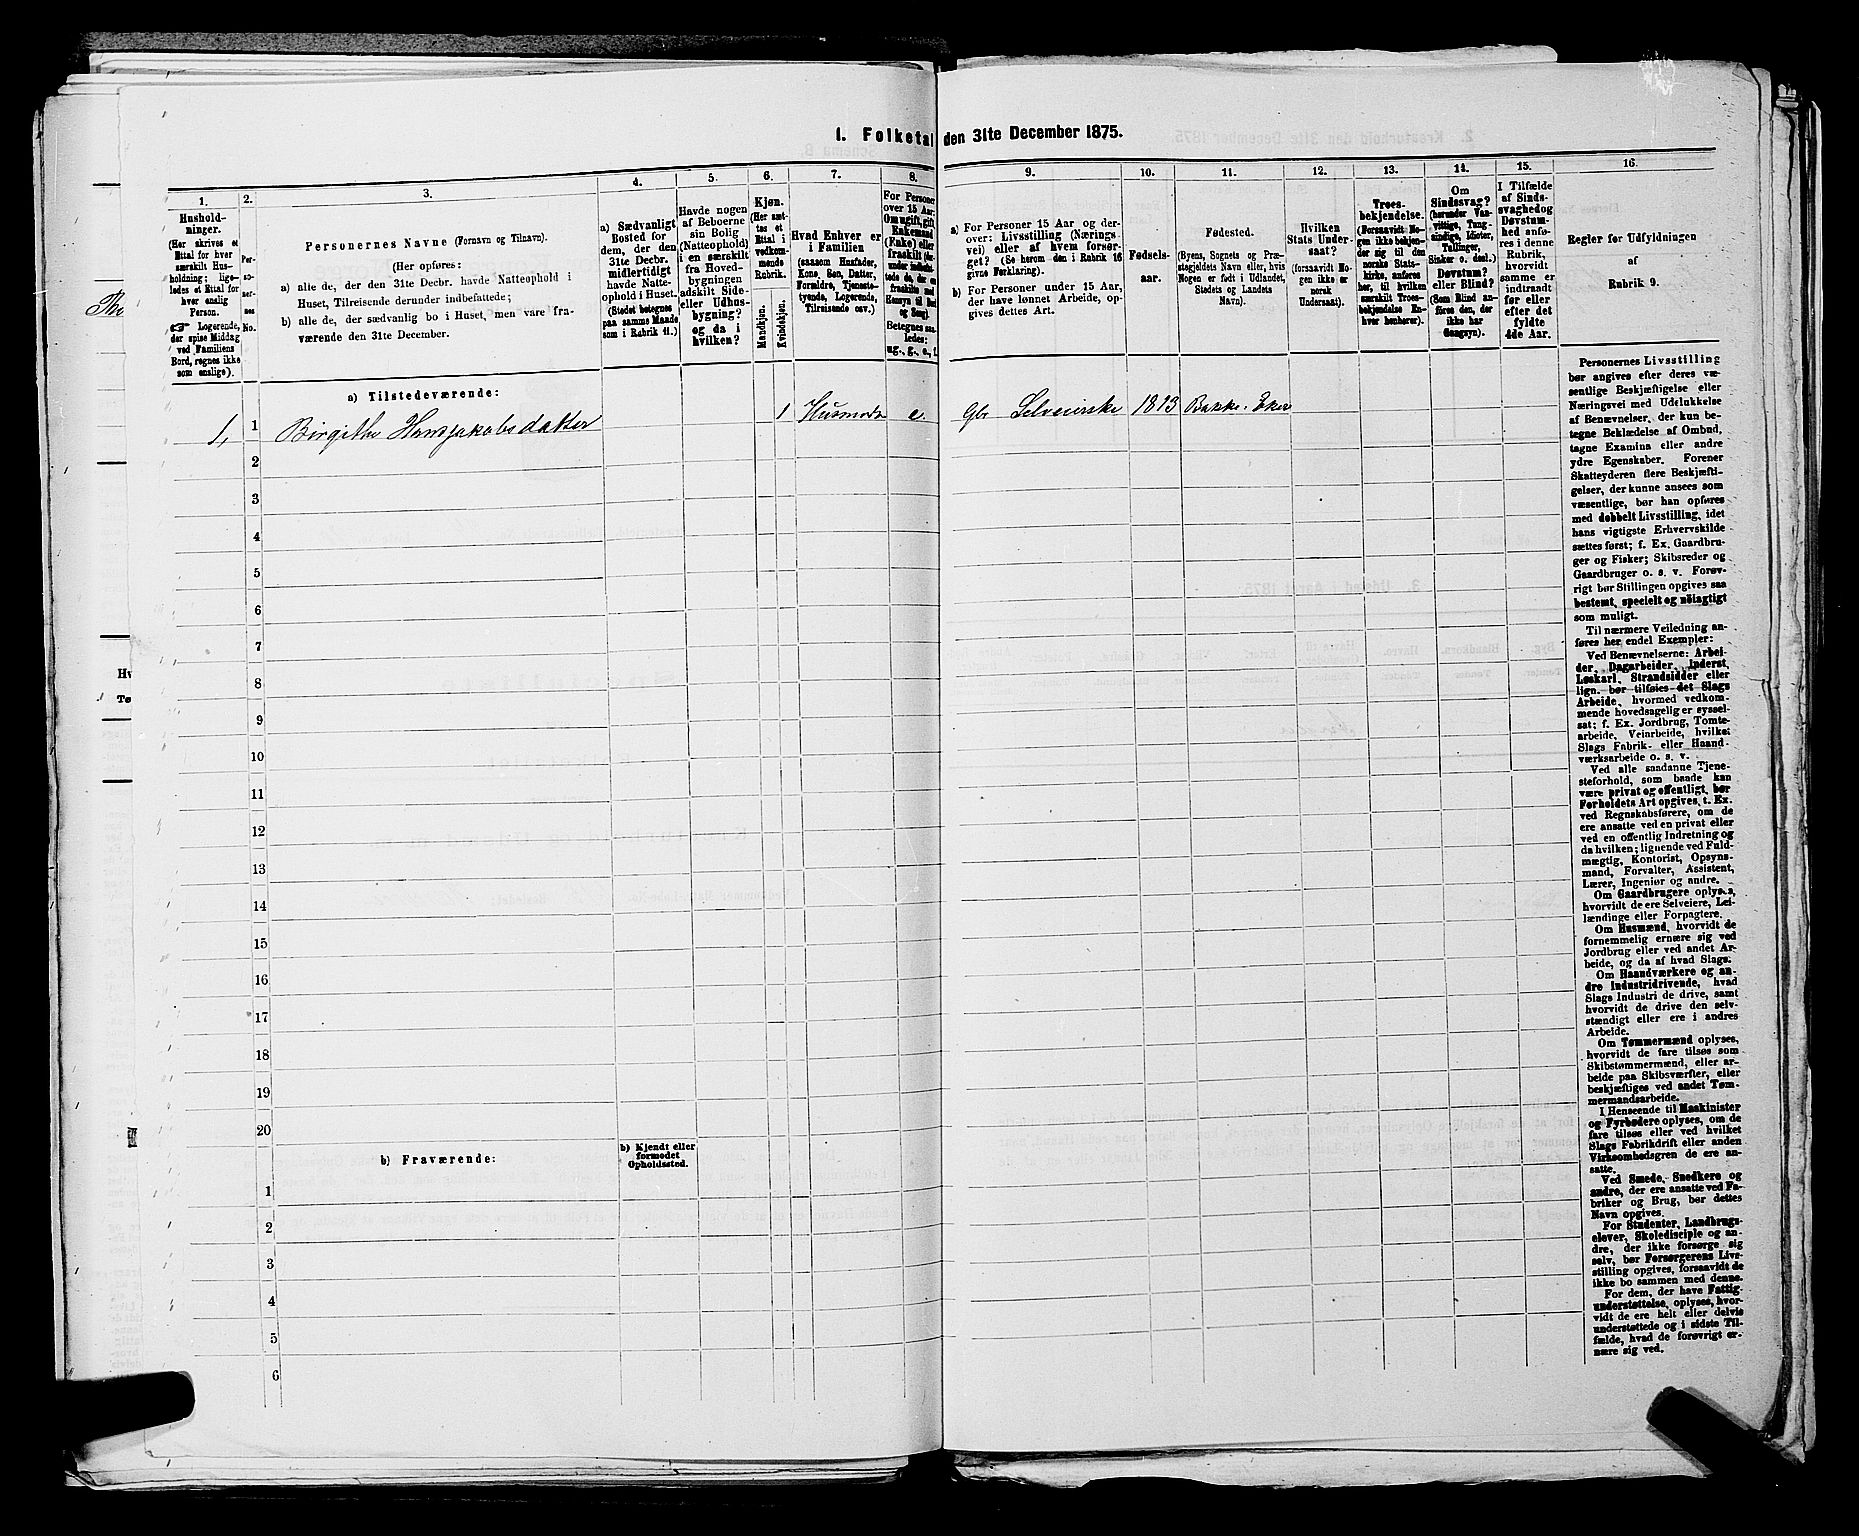 1. Folketal den 31te December 1875.
1.
Hushold-
ninger.
(Her skrives et
Ettal for hver
særskilt Hus-
holdning; lige-
ledes et Ettal for
hver enslig
Person.
Logerende,
der spise Middag
ved Familiens
Bord, regnes ikke
som enslige).
2.
Per-
so-
ner-
nes
No.
3.
Personernes Navne (Fornavn og Tilnavn).
(Her opføres:
a) alle de, der den 31te Decbr. havde Natteophold i
Huset, Tilreisende derunder indbefattede;
b) alle de, der sædvanlig bo i Huset, men vare fra-
værende den 31te December.
4.
a) Sædvanligt
Bosted for
dem, der den
31te Decbr.
midlertidigt
havde Natte-
ophold i Huset.
(Stedet betegnes
paa samme Maade
som i Rubrik 11.)
5.
Havde nogen
af Beboerne
sin Bolig
(Natteophold)
i en særskilt
fra Hoved-
bygningen
adskilt Side-
eller Udhus-
bygning?
og da i
hvilken?
6.
Kjøn.
(Her sæt-
tes et
Ettal i
vedkom-
mende
Rubrik.
Mandkjøn.
Kvindekjøn.
7.
Hvad Enhver er
i Familien
(saasom Husfader,
Kone, Søn, Datter,
Forældre, Tjeneste-
tyende, Logerende,
Tilreisende osv.)
8.
For Personer
over 15 Aar:
Om ugift, gift,
Enkemand
(Enke) eller
fraskilt
Betegnes saa-
ledes:
ug., g., e., f.
9.
a) For Personer 15 Aar og der-
over: Livsstilling (Nærings-
vei) eller af hvem forsør-
get? (Se herom den i Rubrik 16
givne Forklaring).
b) For Personer under 15 Aar,
der have lønnet Arbeide, op-
gives dettes Art.
10.
Fødsels-
aar.
11.
Fødested.
(Byens, Sognets og Præ-
stegjeldets Navn eller, hvis
Nogen er født i Udlandet,
Stedets og Landets
Navn).
12.
Hvilken
Stats Under-
saat?
(forsaavidt No-
gen ikke er
norsk
Undersaat).
13.
Troes-
bekjendelse.
(Forsaavidt No-
gen ikke bekjen-
der sig til den
norske Stats-
kirke, anføres
her, til hvilken
særskilt Troes-
bekjendelse En-
hver henhører).
14.
Om
Sindssvag?
(herunder Van-
vittige, Tung-
sindige, Idioter,
Tullinger,
Sinker o. desl.)
Døvstum?
eller Blind?
(Som Blind an-
føres den, der
ikke har
Gangsyn).
15.
I Tilfælde
af Sinds-
svaghed og
Døvstum-
hed anfø-
res i denne
Rubrik,
hvorvidt
samme er
indtraadt
før eller
efter det
fyldte
4de Aar.
16.
Regler for Udfyldningen
af
Rubrik 9.
a) Tilstedeværende:
1, 1 Birgithe Hansjakobsdatter 1 Husmoder e. Gbr Selveierske 1813 Bakke. Eker
2
3
4
5
6
7
8
9
10
11
12
13
14
15
16
17
18
19
20
b) Fraværende:
b) Kjendt eller
formodet
Opholdssted.
1
2
3
4
5
6
Personernes Livsstilling
bør angives efter deres væ-
sentlige Beskjæftigelse eller
Næringsvei med Udelukkelse
af Benævnelser, der kun be-
tegne Beklædelse af Ombud,
tagne Examina eller andre
ydre Egenskaber. Forener
Skatteyderen flere Beskjæfti-
gelser, der kunne ansees som
væsentlige, bør han opføres
med dobbelt Livsstilling, idet
hans vigtigste Erhvervskilde
sættes først; f. Ex. Gaardbru-
ger og Fisker; Skibsreder og
Gaardbruger o. s. v. Forøv-
rigt bør Stillingen opgives saa
bestemt, specielt og nöiagtigt
som muligt.
Til nærmere Veiledning an-
føres her endel Exempler:
Ved Benævnelserne: Arbei-
der, Dagarbeider, Inderst,
Løskarl, Strandsidder eller
lign. bør tilføies det Slags
Arbeide, hvormed vedkom-
mende hovedsagelig er syssel-
sat; f. Ex. Jordbrug, Tomte-
arbeide, Veiarbeide, hvilket
Slags Fabrik- eller Haand-
værksarbeide o. s. v.
Ved alle saadanne Tjene-
steforhold, som baade kan
være privat og offentligt, bør
Forholdets Art opgives, t. Ex.
ved Regnskabsførere, om de
ere ansatte ved en privat eller
ved en offentlig Indretning og
da hvilken; lignende ved Fuld-
mægtig, Kontorist, Opsyns-
mand, Forvalter, Assistent,
Lærer, Ingeniør og andre.
Om Gaardbrugere oplyses,
hvorvidt de ere Selveiere, Lei-
lændinge eller Forpagtere.
Om Husmænd, hvorvidt de
fornemmelig ernære sig ved
Jordbrug eller ved andet Ar-
beide, og da af hvad Slags.
Om Haandværkere og an-
dre Industridrivende, hvad
Slags Industri de drive, samt
hvorvidt de drive den selv-
stændigt eller ere i andres
Arbeide.
Om Tømmermænd oplyses,
hvorvidt de fare tilsøs som
Skibstømmermænd, eller ar-
beide paa Skibsværfter, eller
beskjæftiges ved andet Tøm-
mermandsarbeide.
I Henseende til Maskinister
og Fyrbødere oplyses, om de
fare tilsøs eller ved hvilket
Slags Fabrikdrift eller anden
Virksomhedsgren de ere an-
satte.
Ved Smede, Snedkere og
andre, der ere ansatte ved Fa-
briker og Brug, bør dettes
Navn opgives.
For Studenter, Landbrugs-
elever, Skoledisciple og an-
dre, der ikke forsørge sig
selv, bør Forsørgerens Livs-
stilling opgives, forsaavidt de
ikke bo sammen med denne.
For dem, der have Fattig-
understøttelse, oplyses, hvor-
vidt de ere helt eller delvis
understøttede og i sidste Til-
fælde, hvad de forøvrigt er-
nære sig ved.